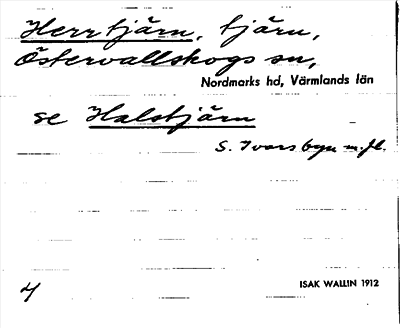 Herrtjärn, tjärn,
Östervallskogs sn,
Nordmarks hd, Värmlands län
se Halstjärn
S. Ivarsbyn m.fl.
ISAK WALLIN 1912